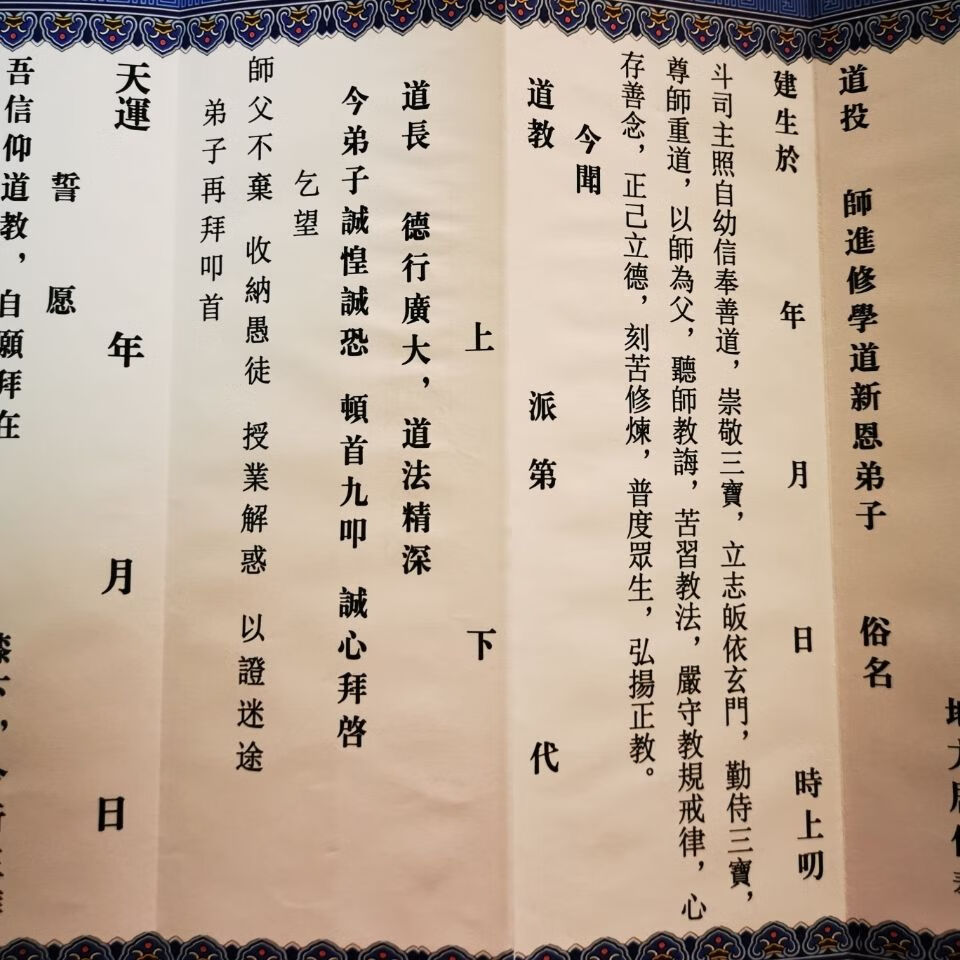 道投 師進修學道新恩弟子 俗名
建生於 年 月 日 時上叨
斗司主照自幼信奉善道，崇敬三寶，立志皈依玄門，勤侍三寶，
尊師重道，以師為父，聽師教誨，苦習教法，嚴守教規戒律，心
存善念，正己立德，刻苦修煉，普度眾生，弘揚正教。
今聞
道教 派第 代
上 下
道長 德行廣大，道法精深
今弟子誠惶誠恐 頓首九叩 誠心拜啓
乞望
師父不棄 收納愚徒 授業解惑 以證迷途
弟子再拜叩首
天運 年 月 日
誓愿
吾信仰道教，自願拜在